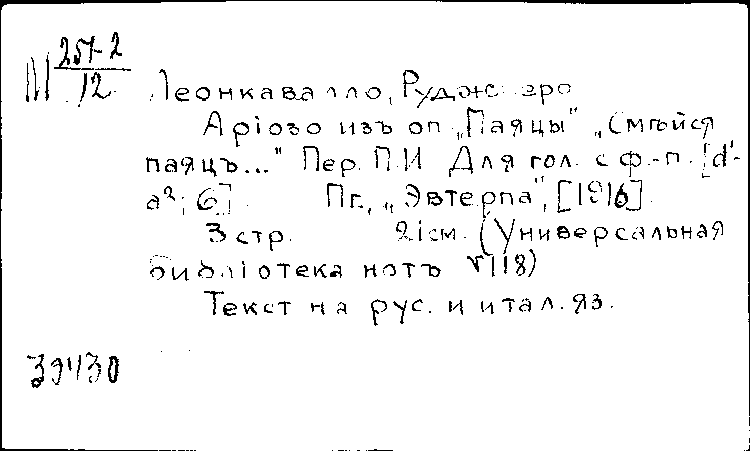 М 257-2
12
Леонкавалло, Руджеро
Арiозо изъ оп. „Паяцы" „Смѣйся
паяцъ..." Пер. П.И Для гол. с ф.-п. [d¹-
a²; 6]. Пг., „Эвтерпа", [1916].
3 стр. 21 см. (Универсальная
библiотека нотъ №118)
Текст на рус. и итал. яз.
39430